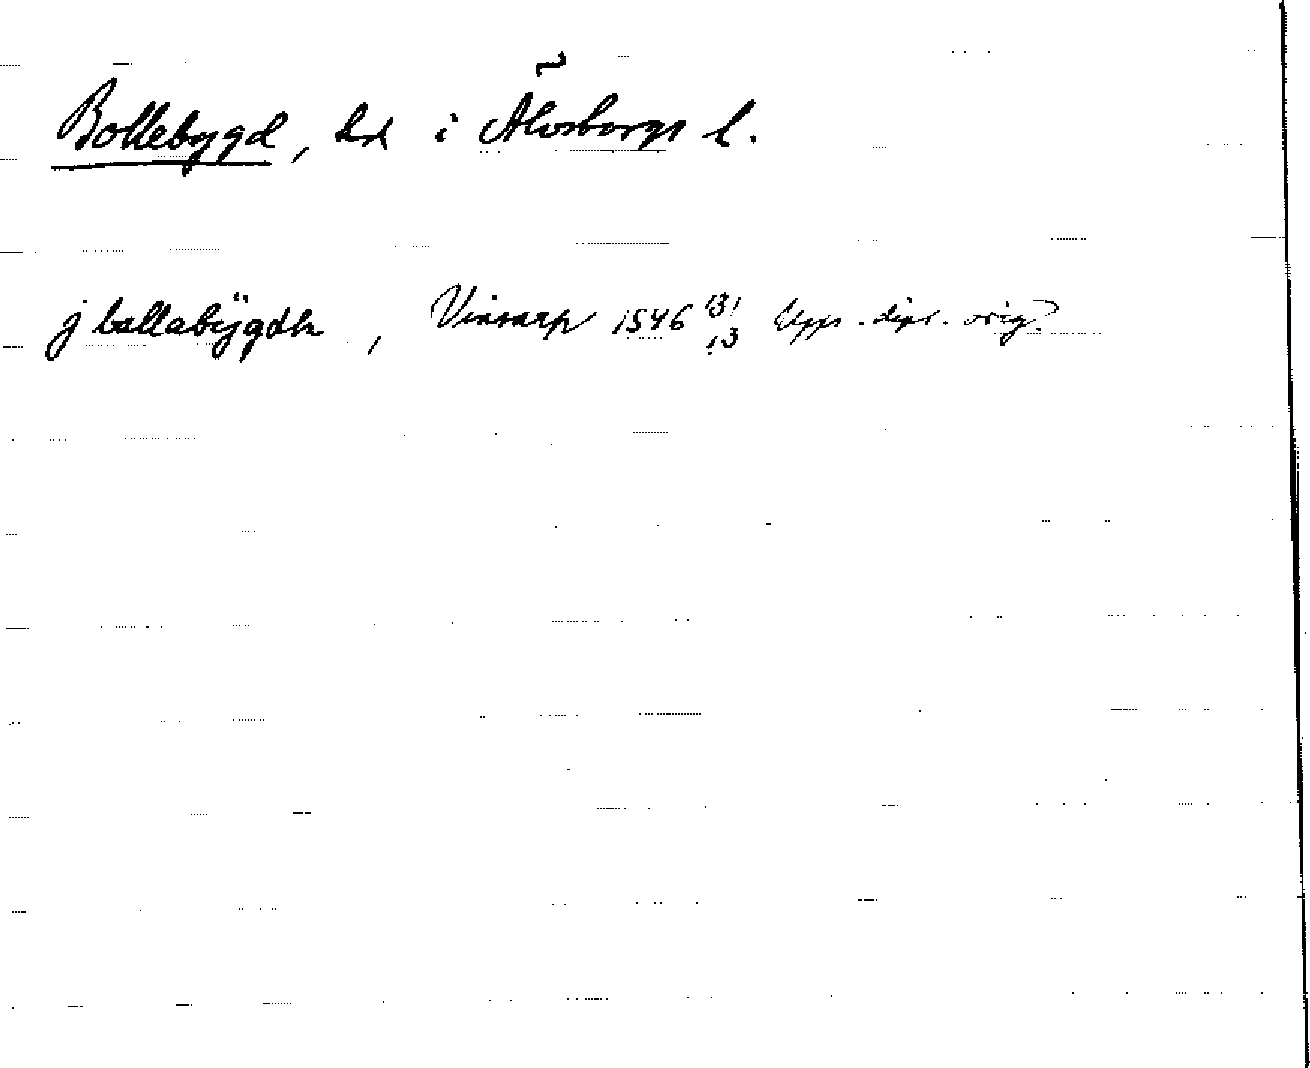 Bollebygd, hd i Älvsborgs l.
j ballabÿgdh, Vinsarp 1546 13/1 13 Upps. dipl. orig.